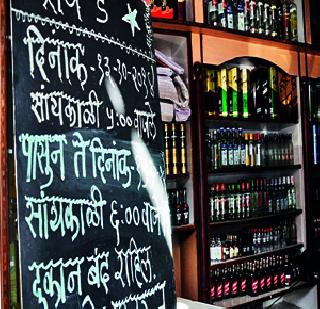 S
दिनांक - १३-१०-२०१
सायकाळी ५:०० वाजे
पासुन ते दिनांक -
सायकाळी ६:०० वाजे
दुकान बंद राहिल.